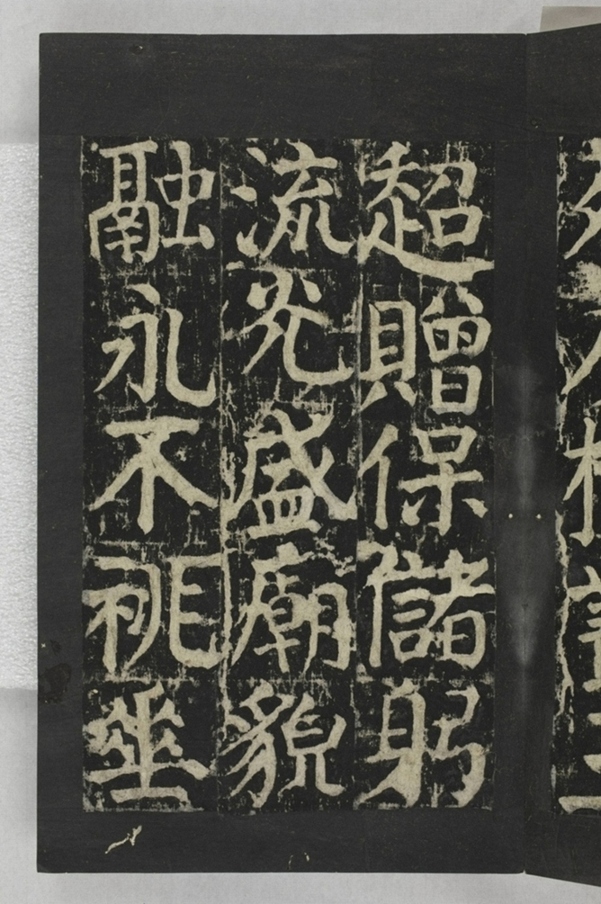 超贈保儲躬
流光盛廟貌
融永不祧垂